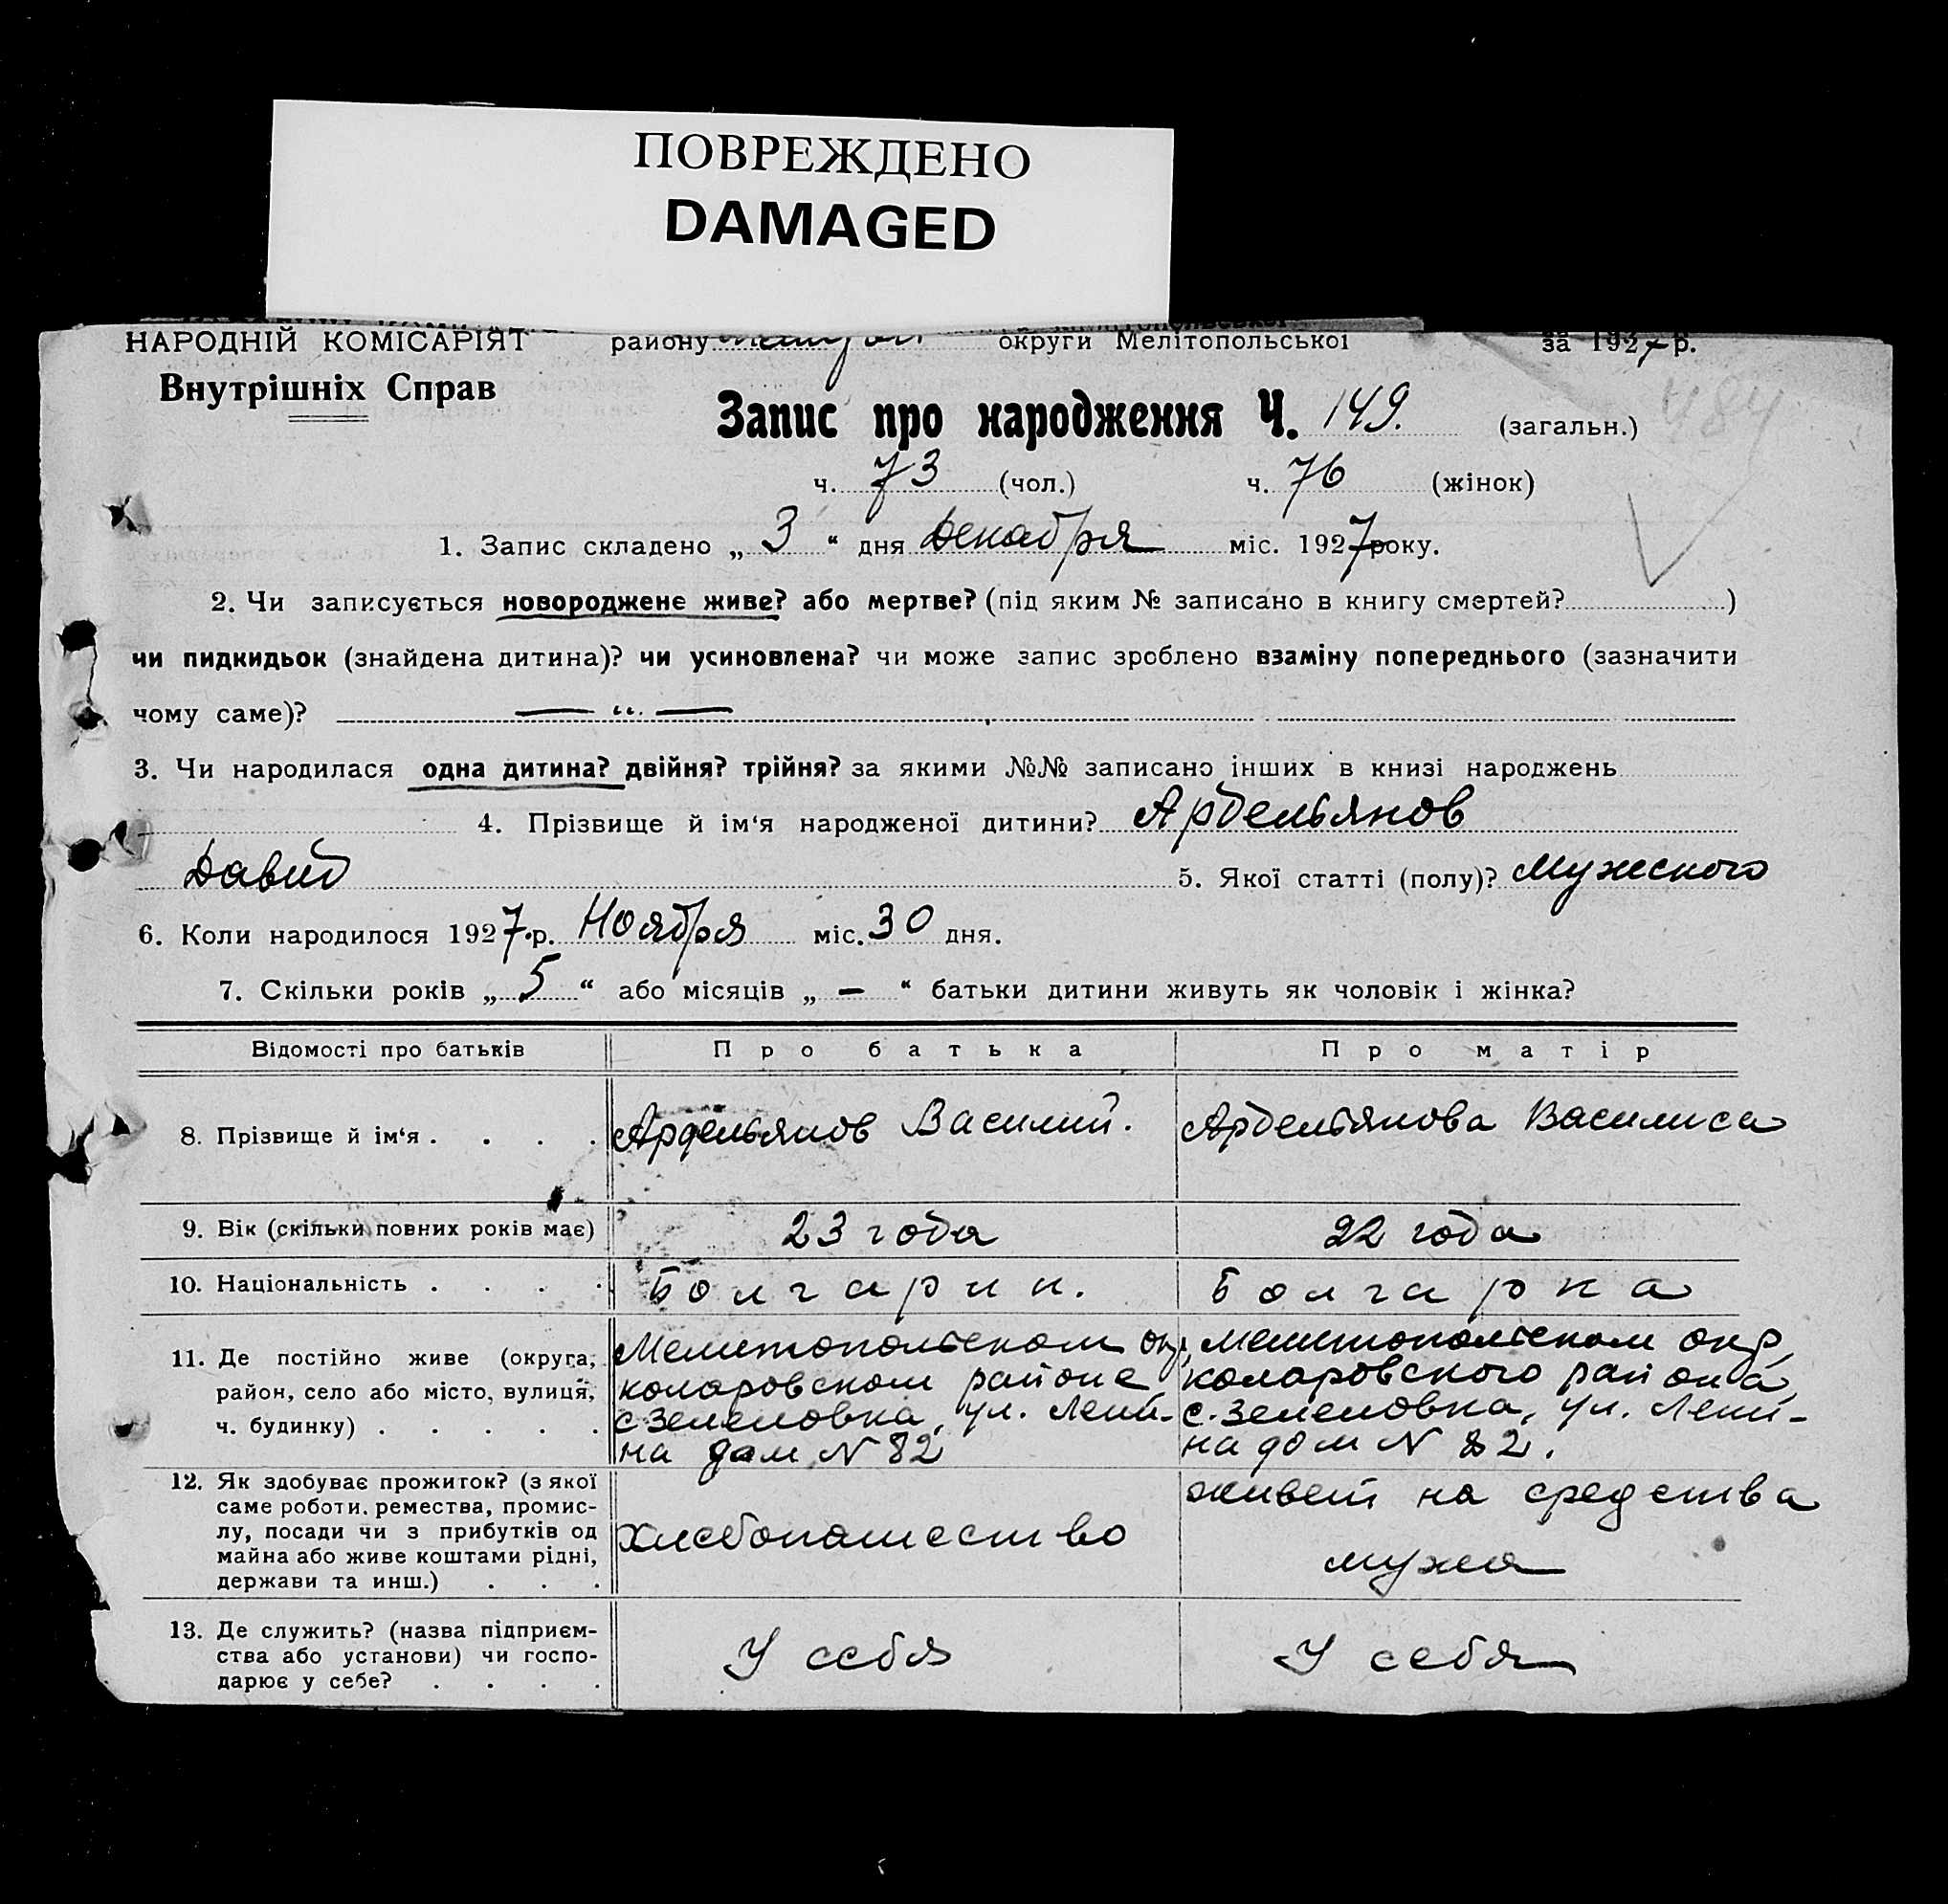 ПОВРЕЖДЕНО
DAMAGED
НАРОДНІЙ КОМІСАРІЯТ району округи Мелітопольської за 1927 р.
Внутрішніх Справ
Запис про народження Ч. 149. (загальн.) 484
ч. 73 (чол.) ч. 76 (жінок)
1. Запис складено „ 3 “ дня Декабря міс. 1927 року.
2. Чи записується новороджене живе? або мертве? (під яким № записано в книгу смертей? )
чи пидкидьок (знайдена дитина)? чи усиновлена? чи може запис зроблено взаміну попереднього (зазначити
чому саме)? — “ —
3. Чи народилася одна дитина? двійня? трійня? за якими №№ записано інших в книзі народжень
4. Прізвище й ім‘я народженої дитини? Ардельянов
Давид 5. Якої статті (полу)? Мужеского
6. Коли народилося 1927. р. Ноября міс. 30 дня.
7. Скільки років „ 5 “ або місяців „ — “ батьки дитини живуть як чоловік і жінка?
Відомості про батьків Про батька Про матір
8. Прізвище й ім‘я . . . . Ардельянов Василий. Ардельянова Василиса
9. Вік (скільки повних років має) 23 года 22 года
10. Національність . . . . Болгарин. Болгарка
11. Де постійно живе (округа, Мелитопольском окр, Мелитопольском окр,
район, село або місто, вулиця, коларовском районе коларовского района,
ч. будинку) . . . . . с Зеленовка, ул. Лени- с. Зеленовка, ул. Лени-
на дом N 82 на дом N 82.
12. Як здобуває прожиток? (з якої живет на средства
саме роботи, ремества, промис-
лу, посади чи з прибутків од хлебопашество
майна або живе коштами рідні, мужа
держави та инш.) . . .
13. Де служить? (назва підприєм-
ства або установи) чи госпо- У себя У себя
дарює у себе? . . . .